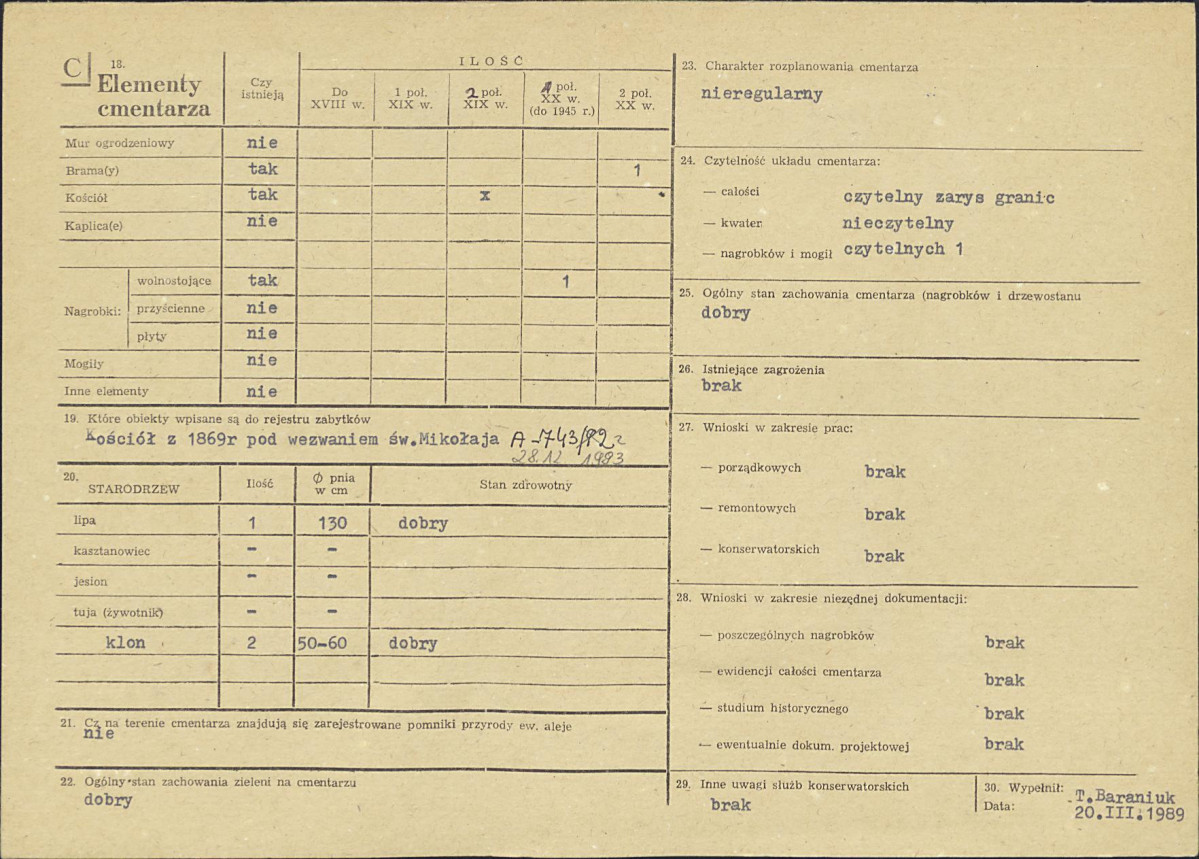 C 18.
Elementy
cmentarza
Czy
istnieją
ILOŚĆ
Do
XVIII w.
1 poł.
XIX w.
2 poł.
XIX w.
1 poł.
XX w.
(do 1945 r.)
2 poł.
XX w.
Mur ogrodzeniowy nie
Brama(y) tak 1
Kościół tak x
Kaplica(e) nie
Nagrobki:
wolnostojące tak 1
przyścienne nie
płyty nie
Mogiły nie
Inne elementy nie
19. Które obiekty wpisane są do rejestru zabytków
Kościół z 1869r pod wezwaniem św.Mikołaja A-743/92
28.12 1983
20.
STARODRZEW
Ilość
Ø pnia
w cm
Stan zdrowotny
lipa 1 130 dobry
kasztanowiec – –
jesion – –
tuja (żywotnik) – –
klon 2 50-60 dobry
21. Cz na terenie cmentarza znajdują się zarejestrowane pomniki przyrody ew. aleje
nie
22. Ogólny stan zachowania zieleni na cmentarzu
dobry
23. Charakter rozplanowania cmentarza
nieregularny
24. Czytelność układu cmentarza:
— całości czytelny zarys granic
— kwater nieczytelny
— nagrobków i mogił czytelnych 1
25. Ogólny stan zachowania cmentarza (nagrobków i drzewostanu
dobry
26. Istniejące zagrożenia
brak
27. Wnioski w zakresie prac:
— porządkowych brak
— remontowych brak
— konserwatorskich brak
28. Wnioski w zakresie niezędnej dokumentacji:
— poszczególnych nagrobków brak
— ewidencji całości cmentarza brak
— studium historycznego brak
— ewentualnie dokum. projektowej brak
29. Inne uwagi służb konserwatorskich
brak
30. Wypełnił: T.Baraniuk
Data: 20.III.1989